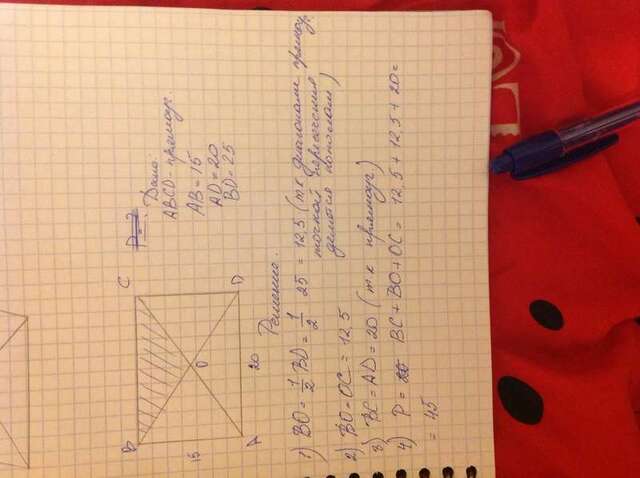 B
C
P = ?
Дано.
ABCD - прямоуг.
AB = 15
AD = 20
BD = 25
15
O
A
D
20
Решение.
1) BO = 1/2 BD = 1/2 25 = 12,5 (т к диагонали прямоуг
точкой пересечения
делятся пополам)
2) BO = OC = 12,5
3) BC = AD = 20 (т.к прямоуг)
4) P = BC + BO + OC = 12,5 + 12,5 + 20 =
= 45